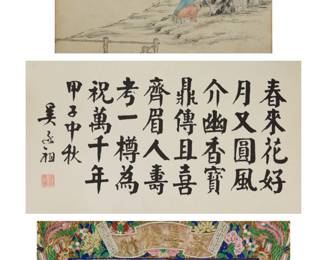 春來花好
月又圓風
介幽香寶
鼎傳且喜
齊眉人壽
考一樽為
祝萬千年
甲子中秋
吳 祖